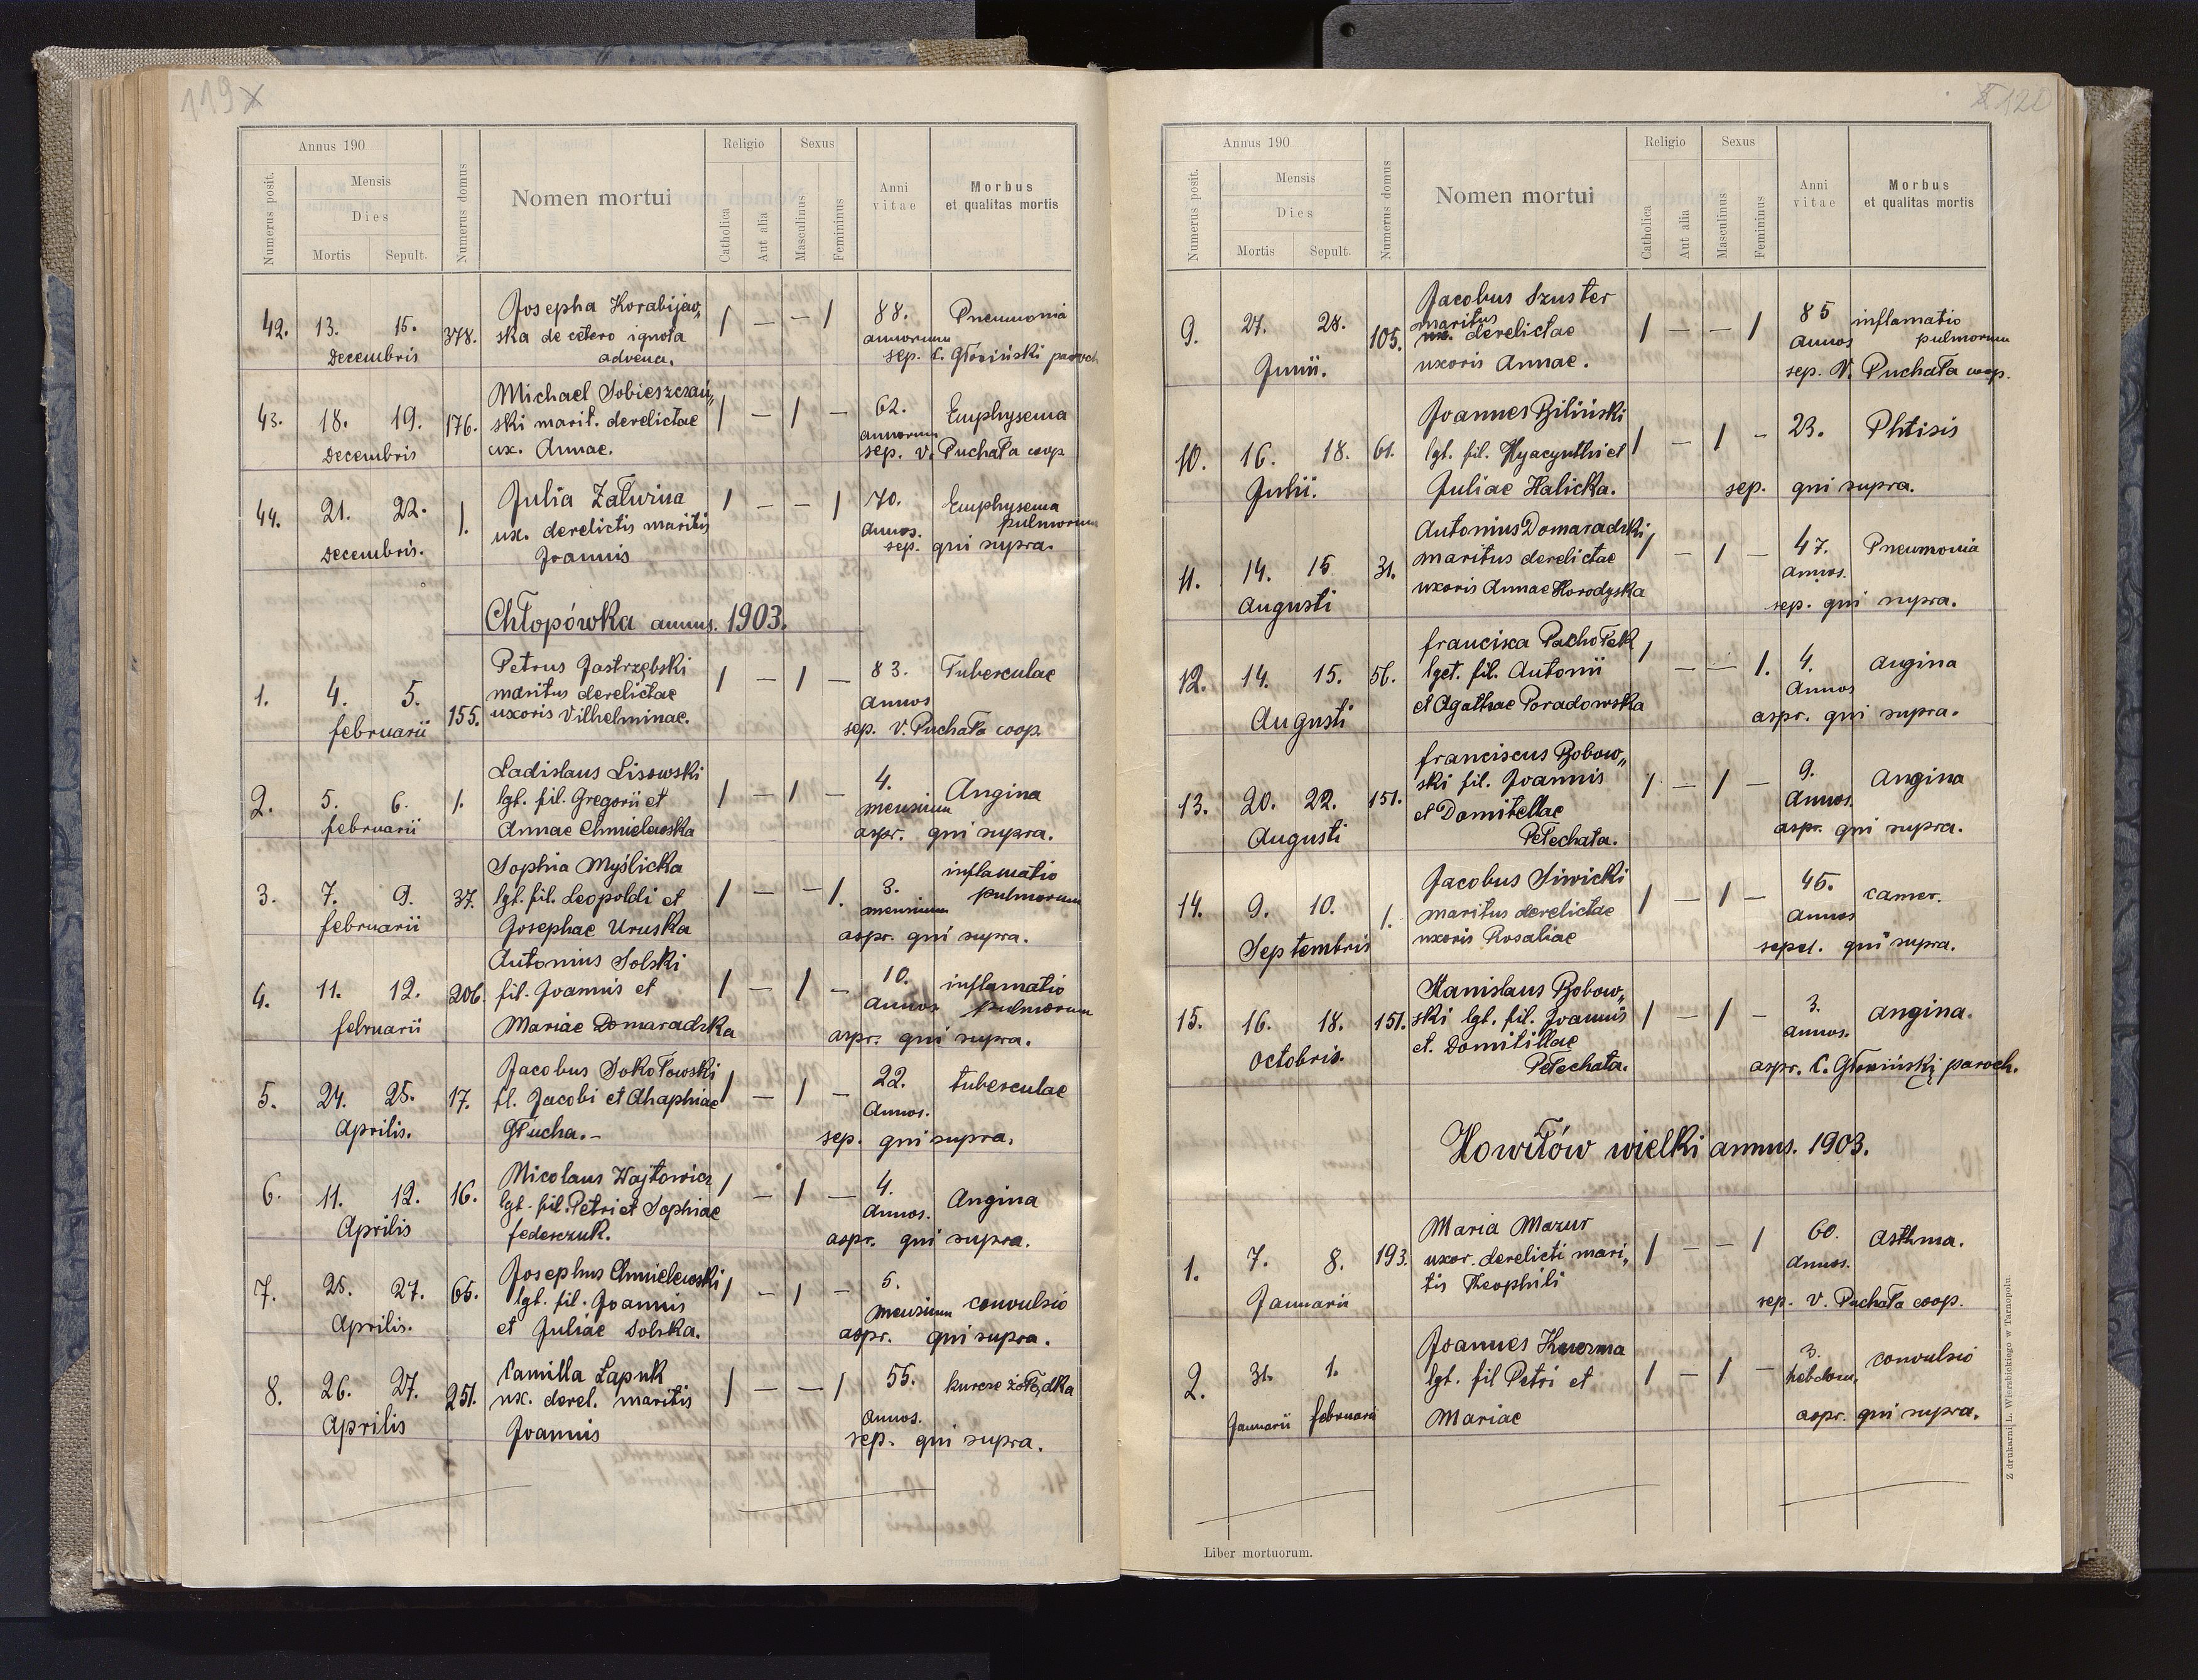 119
Annus 190
Numerus posit.
Mensis
Dies
Mortis Sepult.
Numerus domus
Nomen mortui
Religio
Catholica
Aut alia
Sexus
Masculinus
Femininus
Anni vitae
Morbus et qualitas mortis
42. 13. 15. Decembris 378.
Josepha Korabijow„
ska de cetero ignota
advena.
/ — — / 88. annorum Pneumonia
sep. C. Głowiński paroch
43. 18. 19. Decembris 176.
Michael Sobieszczań„
ski marit. derelictae
ux. Annae.
/ — / — 62. annorum Emphysema
sep. V. Puchała coop
44. 21. 22. Decembris. 1.
Julia Załuzna
ux. derelictis maritis
Joannis
/ — — / 70. annos. Emphysema pulmorum
sep. qui supra.
Chłopówka annus. 1903.
1. 4. 5. februarii 155.
Petrus Jastrzębski
maritus derelictae
uxoris Vilhelminae.
/ — / — 83. annos Tuberculae
sep. V. Puchała coop.
2. 5. 6. februarii 1.
Ladislaus Lisowski
lgt. fil. Gregorii et
Annae Chmielewska
/ — / — 4. mensium Angina
aspr. qui supra.
3. 7. 9. februarii 37.
Sophia Myślicka
lgt. fil. Leopoldi et
Josephae Uruska
/ — — /. 3. mensium inflamatio pulmorum
aspr. qui supra.
4. 11. 12. februarii 206.
Antonius Solski
fil. Joannis et
Mariae Domaradzka
/ — / — 10. annos inflamatio pulmorum
aspr. qui supra.
5. 24. 25. Aprilis. 17.
Jacobus Sokołowski
fl. Jacobi et Ahaphiae
Głucha.-
/ — / — 22. Annos. tuberculae
sep. qui supra.
6. 11. 12. Aprilis 16.
Nicolaus Wajtowicz
lgt. fil. Petri et Sophiae
federczuk.
/ — / — 4. Annos. Angina
aspr. qui supra.
7. 25. 27. Aprilis. 65.
Josephus Chmielewski
lgt. fil. Joannis
et Juliae Solska.
/ — / — 5. mensium convulsio
aspr. qui supra.
8. 26. 27. Aprilis 251.
Camilla Łapuk
ux. derel. maritis
Joannis
/ — — / 55. annos. kurcze żołądka
sep. qui supra.
120
Annus 190
Numerus posit.
Mensis
Dies
Mortis Sepult.
Numerus domus
Nomen mortui
Religio
Catholica
Aut alia
Sexus
Masculinus
Femininus
Anni vitae
Morbus et qualitas mortis
9. 27. 28. Junii. 105.
Jacobus Szuster
maritus
ux. derelictae
uxoris Annae.
/ — — / 85 annos inflamatio pulmorum
sep. V. Puchała coop.
10. 16. 18. Julii. 61.
Joannes Biliński
lgt. fil. Hyacynthi et
Juliae Halicka.
/ — / — 23. Phtisis
sep. qui supra.
11. 14. 15 Augusti 31.
Antonius Domaradzki
maritus derelictae
uxoris Annae Horodyska
/ — / — 47. annos. Pneumonia
sep. qui supra.
12. 14. 15. Augusti 56.
francisca Pachołek
lget. fil. Antonii
et Agathae Poradowska
/ — — /. 4. Annos Angina
aspr. qui supra.
13. 20. 22. Augusti 151.
franciscus Bobow„
ski fil. Joannis
et Domitellae
Pełechata.
/ — / — 9. Annos. Angina
aspr. qui supra.
14. 9. 10. Septembris 1.
Jacobus Siwicki
maritus derelictae
uxoris Rosaliae
/ — / — 45. annos camer.
sepel. qui supra.
15. 16. 18. Octobris. 151.
Stanislaus Bobow„
ski lgt. fil. Joannis
et. Domitillae
Pełechata.
/ — / — 3. annos. angina.
aspr. C. Głowiński paroch.
Howiłów wielki annus. 1903.
1. 7. 8. Januarii 193.
Maria Mazur
uxor. derelicti mari„
tis Theophili
/ — — / 60. annos. Asthma.
sep. V. Puchała coop.
2. 31. 1. Januarii februarii
Joannes Kuczma
lgt. fil Petri et
Mariae
/ — / — 3. hebdom. convulsio
aspr. qui supra.
Liber mortuorum.
Z drukarni L. Wierzbickiego w Tarnopolu.